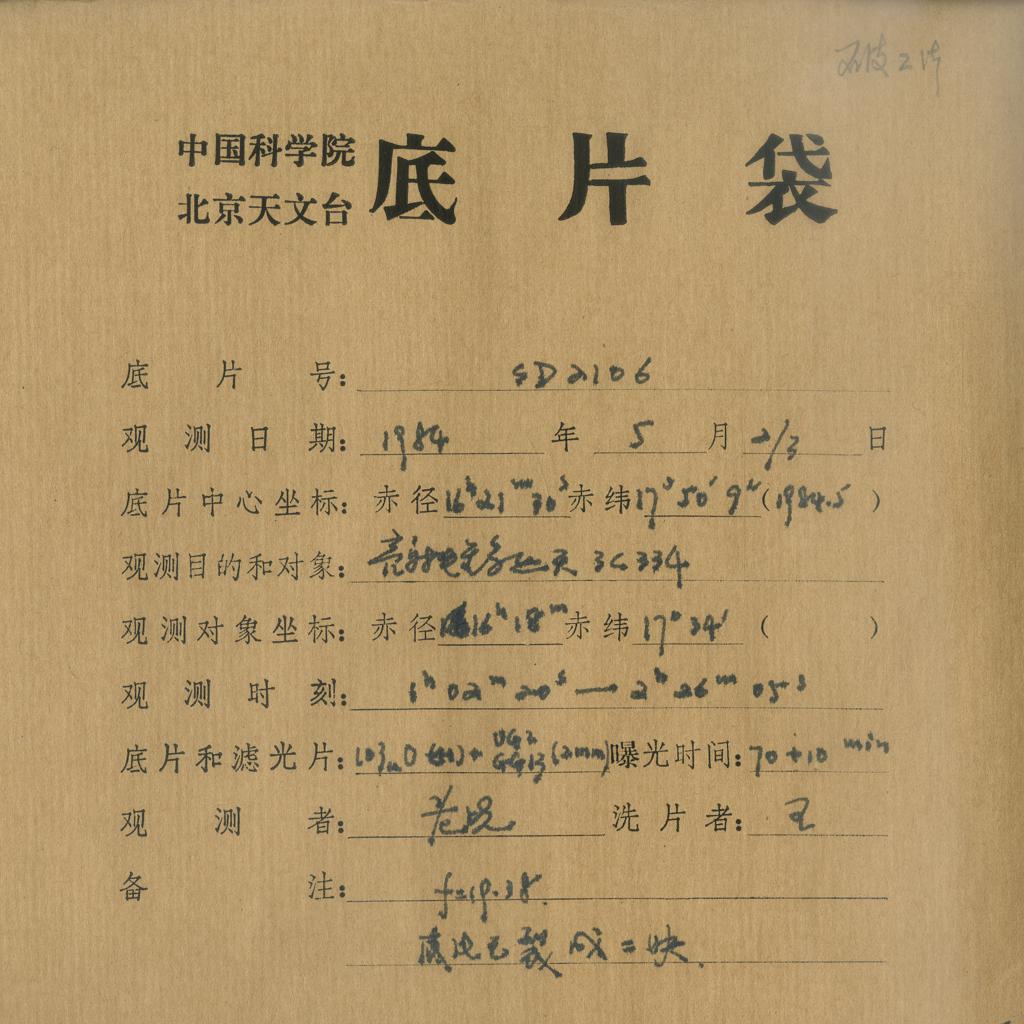 破
中国科学院
北京天文台
底片袋
底片号: SD2106
观测日期: 1984年5月2/3日
底片中心坐标: 赤径16h21m30s赤纬17°50'9"(1984.5)
观测目的和对象: 3C334
观测对象坐标: 赤径16h18m赤纬17°34'( )
观测时刻: 1h02m20s—2h26m05s
底片和滤光片: UG2 GG13(2mm)曝光时间:70+10min
观测者: 洗片者:王
备注: f=19.38.
底片已裂成二块.